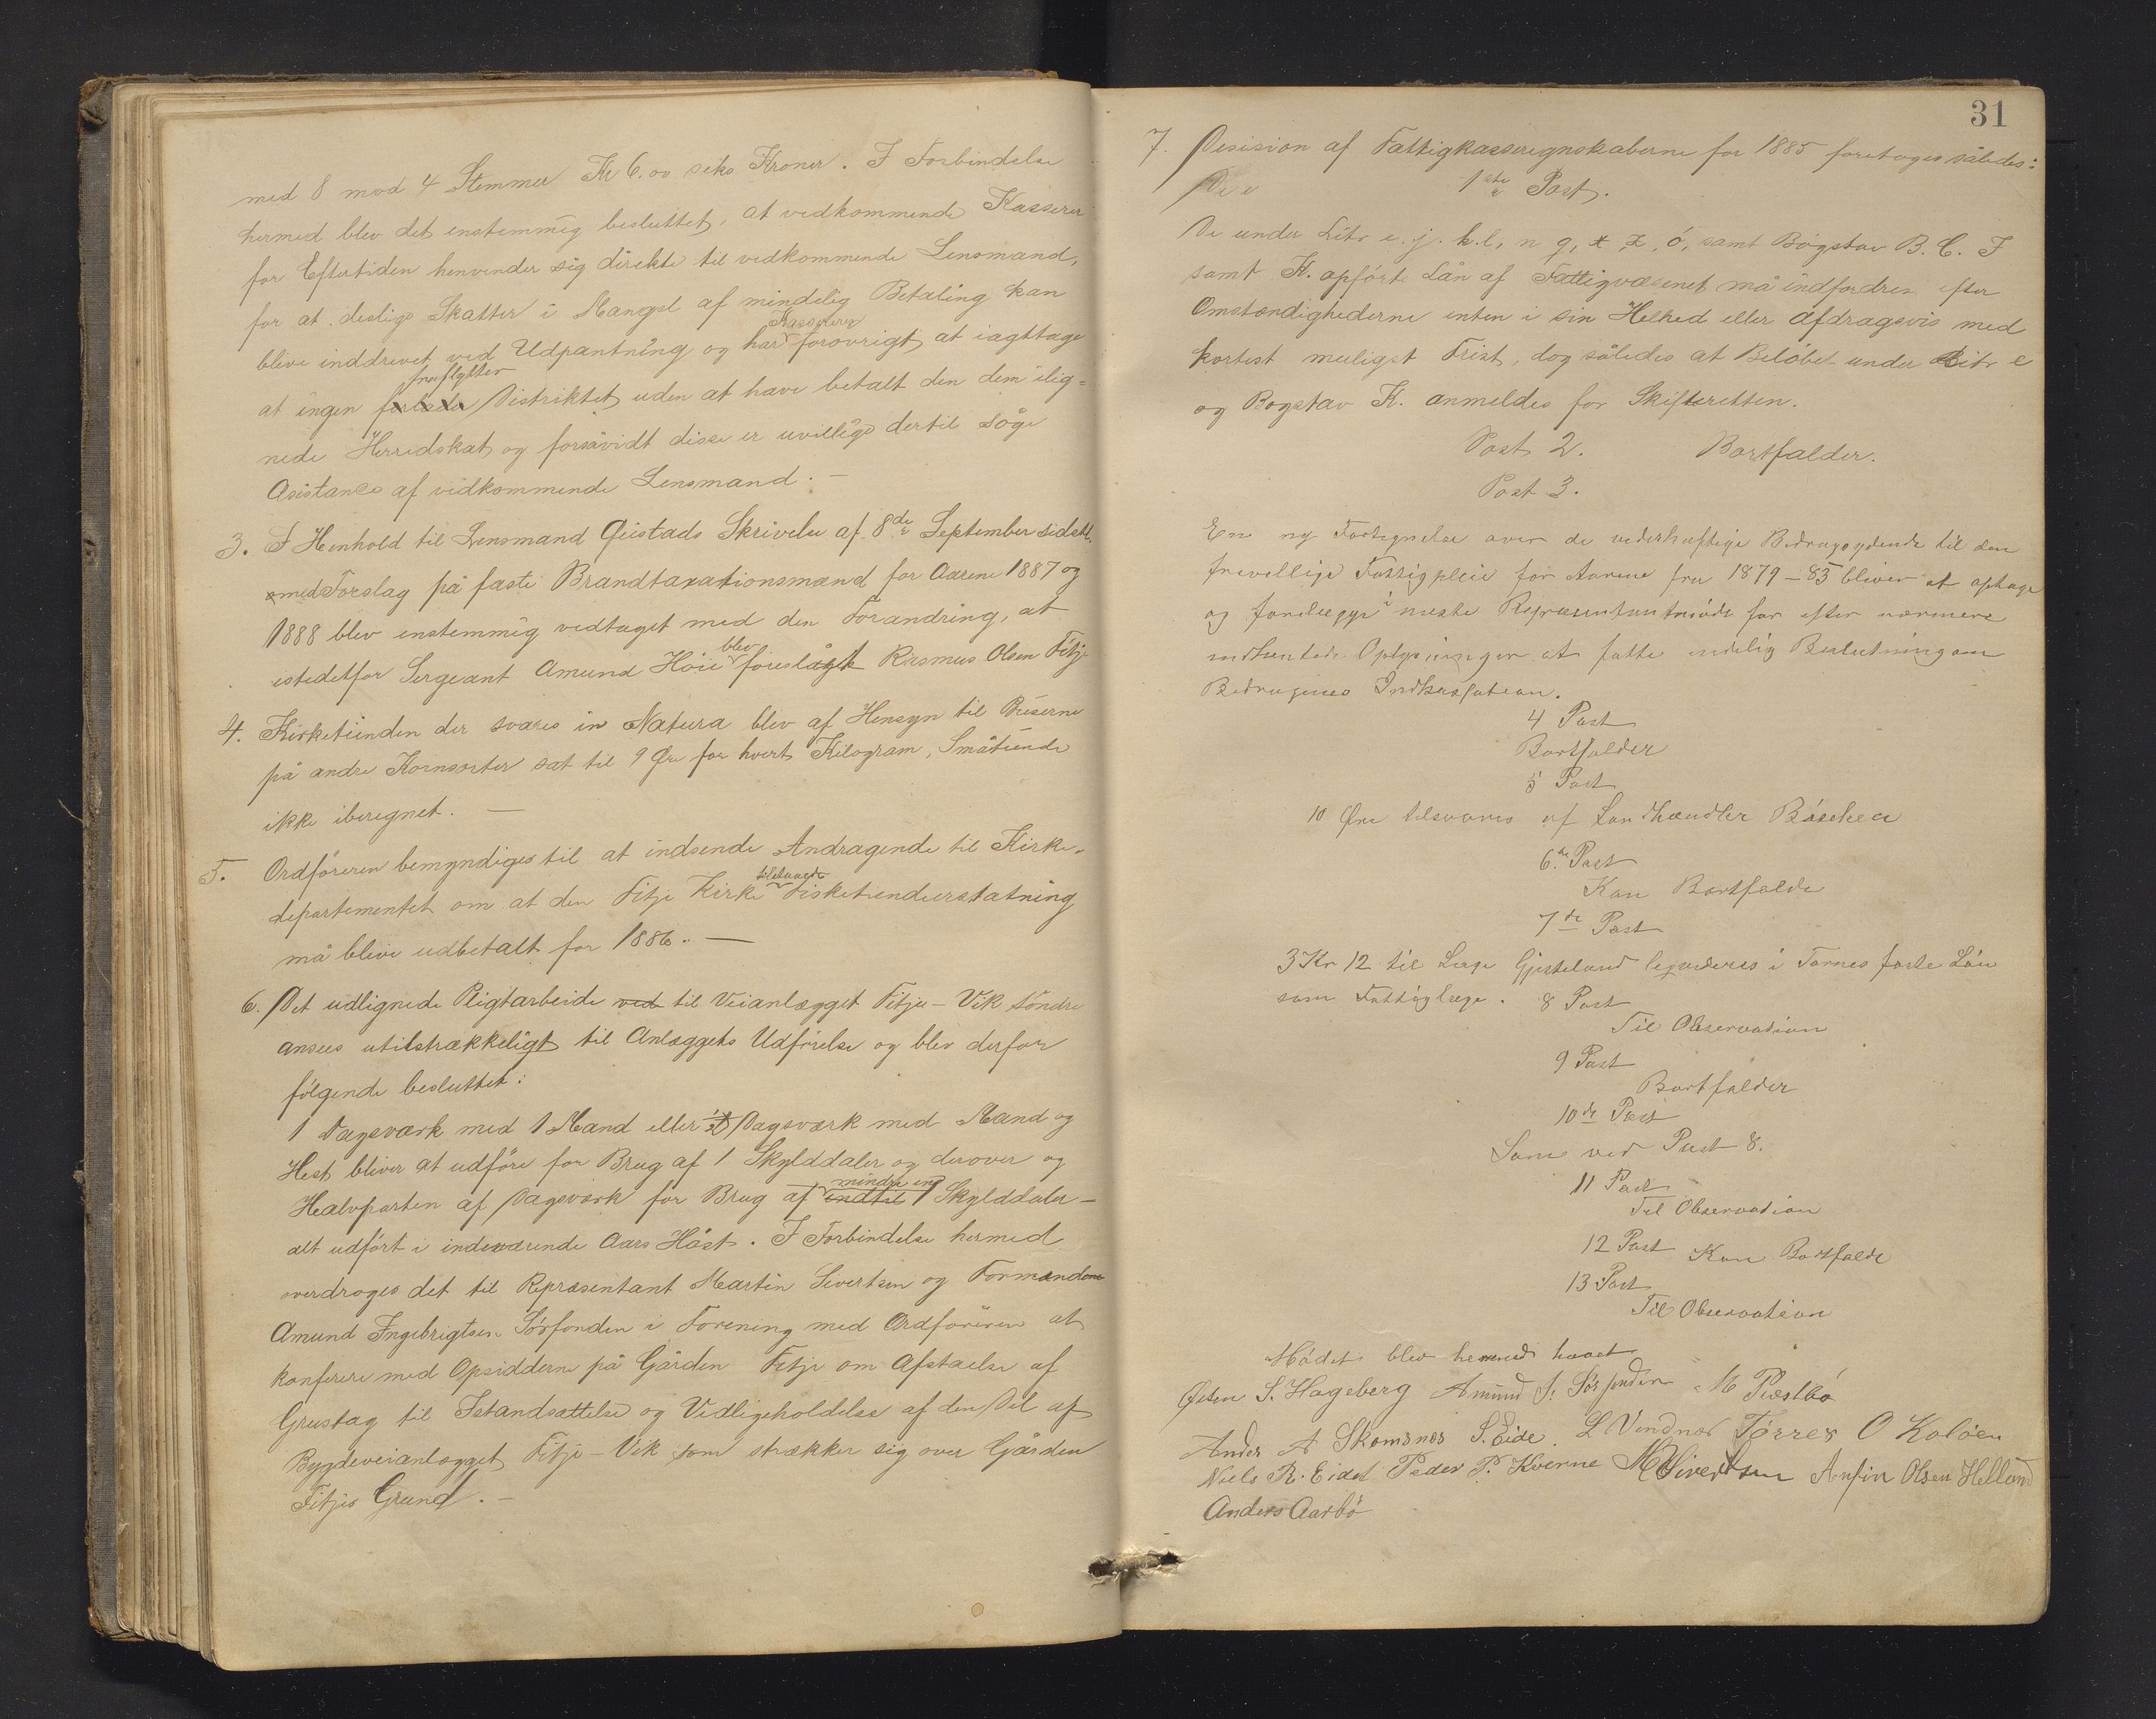 med 8 mod 4 Stemmer Kr 6.00 seks Kroner. I Forbindelse
hermed blev det enstemmig besluttet, at vedkommende Kasserer
for Eftertiden henvender sig direkte til vedkommende Lensmand,
for at deslige Skatter i Mangel af mindelig Betaling kan
blive inddrevet ved Udpantning og har Kassereren forøvrigt at iagttage
at ingen forlader fraflytter Distriktet uden at have betalt den dem ilig-
nede Herredskat og forsåvidt disse er uvillige dertil søge
Asistance af vidkommende Lensmand. –
3. I Henhold til Lensmand Gustads Skrivelse af 8de September sidstl.
med Forslag på faste Brandtaxationsmænd for Aarene 1887 og
1888 blev enstemmig vedtaget med den Forandring, at
istedetfor Sergeant Amund Höie blev foreslågt Rasmus Olsen Fitje
4. Kirketienden der svares in Natura blev af Hensyn til Priserne
på andre Kornsorter sat til 9 Øre for hvert Kilogram, Småtiende
ikke iberegnet. —
5. Ordföreren bemyndiges til at indsende Andragende til Kirke-
departementet om at den Fitje Kirke tilstaaede Fisketiendeerstatning
må blive udbetalt for 1886. —
6. Det udlignede Pligtarbeide ved til Veianlægget Fitje – Vik söndre
ansees utilstrækkeligt til Anlæggets Udförelse og blev derfor
fölgende besluttet:
1 Dagsværk med 1 Mand eller ½ Dagsværk med Mand og
Hest bliver at udföre for Brug af 1 Skylddaler og derover og
Halvparten af Dagsværk for Brug af indtil mindre end 1 Skylddaler –
alt udfört i indeværende Aars Höst. I Forbindelse hermed
overdroges det til Repræsentant Martin Sivertsen og Formændene
Amund Ingebrigtsen Sörfonden i Forening med Ordföreren at
konferere med Opsidderne på Gården Fitje om Afståelse af
Grustag til Istandsættelse og Vedligeholdelse af den Del af
Bygdeveianlægget Fitje – Vik som strækker sig over Gården
Fitjes Grund. –
31
7. Desision af Fattigkasseregnskaberne for 1885 foretoges således:
De e 1ste Post.
De under Litr e. j. k. l, n q, x, z, ö, samt Bogstav B. C. F
samt K. opförte Lån af Fattigvæsenet må indfordres efter
Omstændighederne enten i sin Helhed eller afdragsvis med
kortest muligst Frist, dog således at Belöbet under Litr e
og Bogstav K. anmeldes for Skifteretten.
Post 2. Bortfalder.
Post 3.
En ny Fortegnelse over de vederhæftige Bidragsydende til den
frivellige Fattigpleie for Aarene fra 1879–85 bliver at optage
og forelægges i neste Repræsentantmöde for efter nærmere
indhentede Oplysninger at fatte endelig Beslutning om
Bidragenes Indkassation.
4 Post
Bortfalder
5 Post
10 Øre tilsvares af Landhandler
6te Post
Kan Bortfalde
7de Post
3 Kr 12 til Læge Gjesteland i faste Lön
som Fattiglæge. 8 Post
Til Observation
9 Post
Bortfalder
10de Post
Som ved Post 8.
11 Post
Til Observation
12 Post Kan Bortfalde
13 Post
Til Observation
Mödet blev hermed hævet
Østen S. Hageberg Amund I. Sörfonden M Præstbö
Anders A Skomsnes S. Eide. L Vendnes Törres O Kolöen
Niels R. Eidet Peder P. Kverne M Sivertsen Anfin Olsen Helland
Anders Aarbö